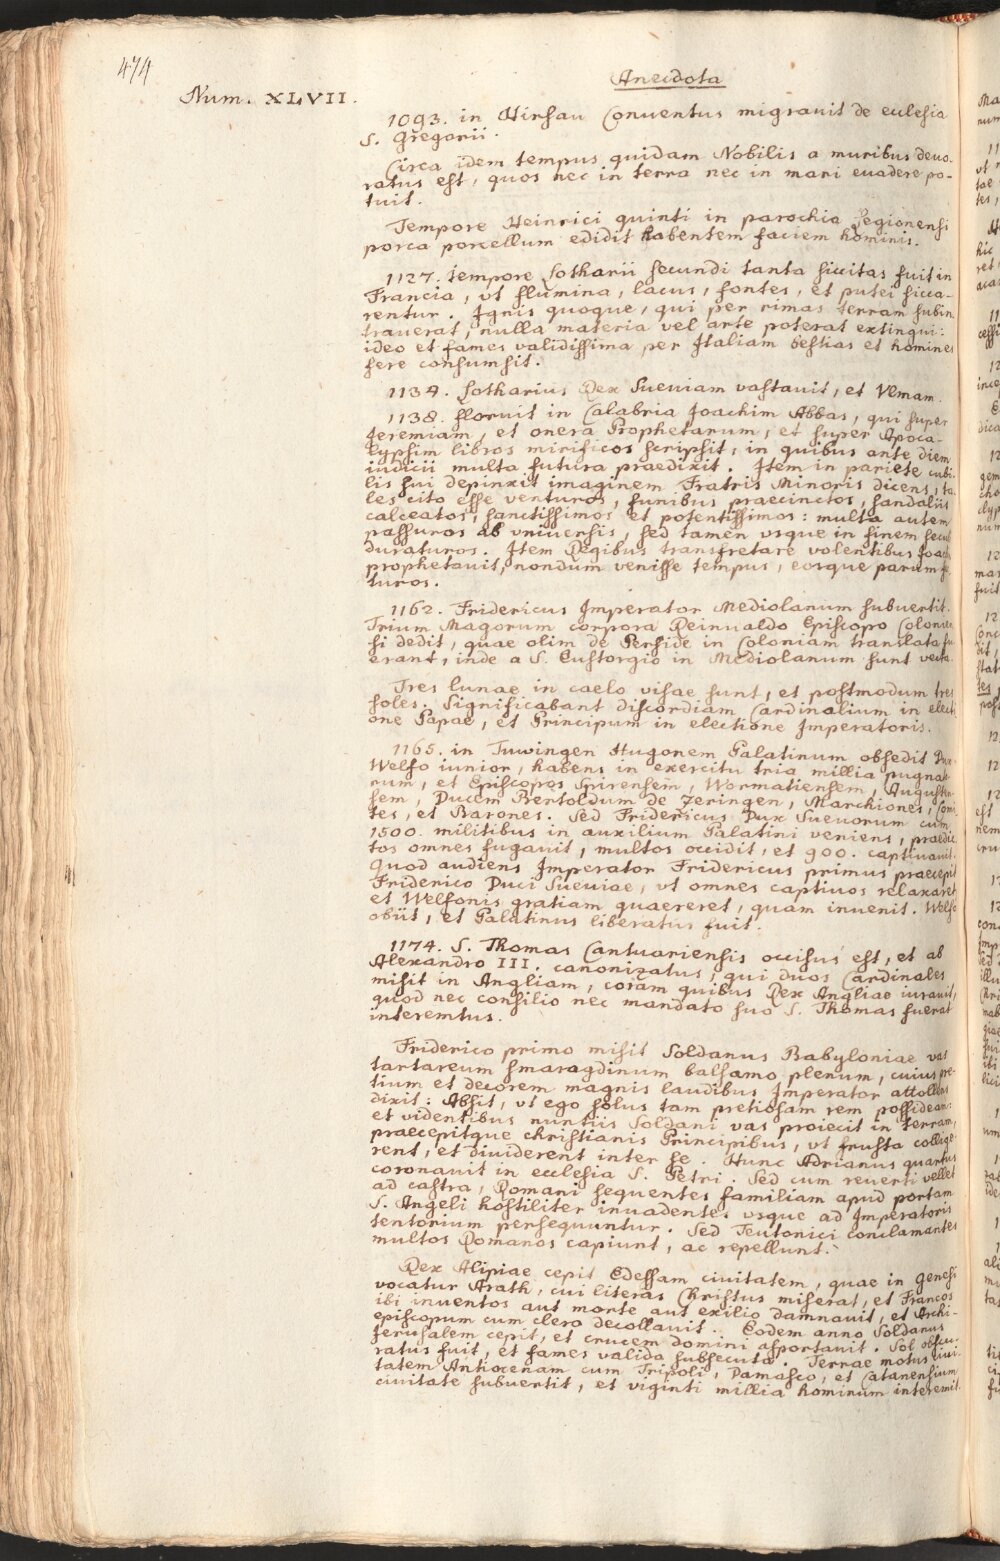 474
Anecdota
Num. XLVII.
1093. in Hirsau Conventus migravit de ecclesia
S. Gregorii.
Circa idem tempus quidam Nobilis a muribus devo-
ratus est, quos nec in terra nec in mari evadere po-
tuit.
Tempore Heinrici quinti in parochia Legionensi
porca porcellum edidit habentem faciem hominis.
1127. tempore Lotharii secundi tanta siccitas fuit in
Francia, ut flumina, lacus, fontes, et putei sicca-
rentur. Ignis quoque, qui per rimas terram subin
traverat, nulla materia vel arte poterat extingui:
ideo et fames validissima per Italiam bestias et homines
fere consumsit.
1134. Lotharius Rex Sueviam vastavit, et Ulmam.
1138. floruit in Calabria Joachim Abbas, qui super
Jeremiam, et onera Prophetarum, et super Apoca-
lypsim libros mirificos scripsit, in quibus ante diem
iudicii multa futura praedixit. Item in pariete cubi-
lis sui depinxit imaginem Fratris Minoris dicens, ta
les cito esse venturos, funibus praecinctos, sandaliis
calceatos, sanctissimos et potentissimos: multa autem
passuros ab universis, sed tamen usque in finem secul
duraturos. Item Regibus transfretare volentibus Joach
prophetavit, nondum venisse tempus, eosque parum
turos.
1162. Fridericus Imperator Mediolanum subvertit.
Trium Magorum corpora Reinualdo Episcopo Colonien
si dedit, quae olim de Perside in Coloniam translata fu
erant, inde a S. Eustorgio in Mediolanum sunt vecta.
Tres lunae in caelo visae sunt, et postmodum tres
soles. Significabant discordiam Cardinalium in electi
one Papae, et Principum in electione Imperatoris.
1165. in Tuwingen Hugonem Palatinum obsedit Dux
Welfo iunior, habens in exercitu tria millia pugnato
rum, et Episcopos Spirensem, Wormatiensem, Augusten
sem, Ducem Bertoldum de Zeringen, Marchiones, Comi
tes, et Barones. Sed Fridericus Dux Suevorum cum
1500. militibus in auxilium Palatini veniens, praedic
tos omnes fugavit, multos occidit, et 900. captivavit.
Quod audiens Imperator Fridericus primus praecepit
Friderico Duci Sueviae, ut omnes captivos relaxaret
et Welfonis gratiam quaereret, quam invenit. Welfo
obiit, et Palatinus liberatus fuit.
1174. S. Thomas Cantuariensis occisus est, et ab
Alexandro III. canonizatus, qui duos Cardinales
misit in Angliam, coram quibus Rex Angliae iuravit,
quod nec consilio nec mandato suo S. Thomas fuerat
interemtus.
Friderico primo misit Soldanus Babyloniae vas
tartareum smaragdinum balsamo plenum, cuius pre-
tium et decorem magnis laudibus Imperator attollens
dixit: Absit, ut ego solus tam pretiosam rem possideam:
et videntibus nuntiis Soldani vas proiecit in terram,
praecepitque christianis Principibus, ut frusta collige-
rent, et dividerent inter se. Hunc Adrianus quartus
coronavit in ecclesia S. Petri. Sed cum reverti vellet
ad castra, Romani sequentes familiam apud portam
S. Angeli hostiliter invadentes usque ad Imperatoris
tentorium persequuntur. Sed Teutonici conclamantes
multos Romanos capiunt, ac repellunt.
Rex Alipiae cepit Edessam civitatem, quae in genesi
vocatur Arath, cui literas Christus miserat, et Francos
ibi inventos aut morte aut exilio damnavit, et Archi-
episcopum cum clero decollavit. Eodem anno Soldanus
Jerusalem cepit, et crucem domini asportavit. Sol obscu-
ratus fuit, et fames valida subsecuta. Terrae motus civi
tatem Antiocenam cum Tripoli, Damasco, et Catanensium
civitate subvertit, et viginti millia hominum interemit.